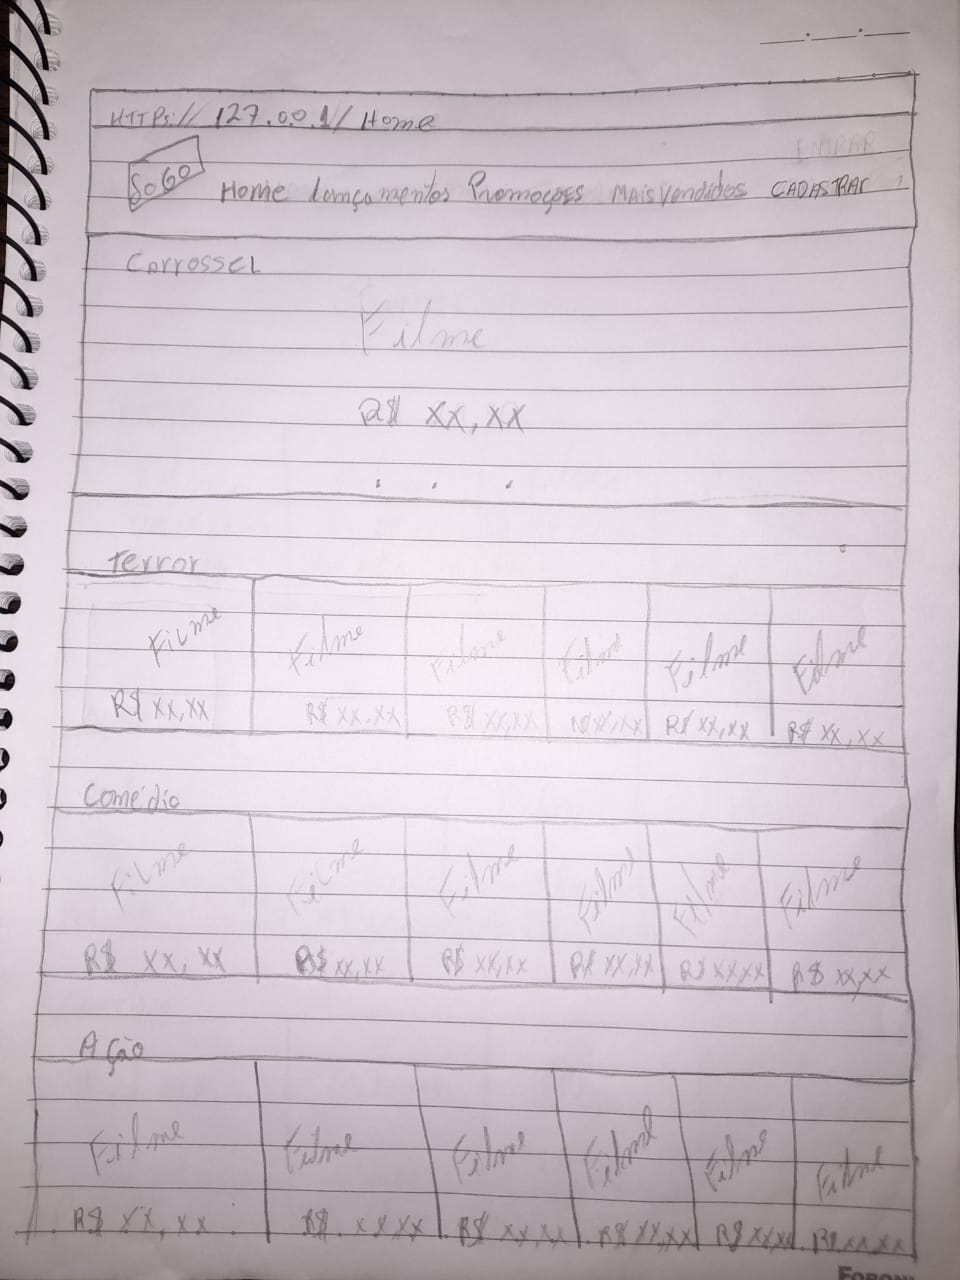 HTTPs:// 127.0.0.1/ Home
ENTRAR
SoGo
Home Lançamentos Promoções Mais Vendidos CADASTRAr
CarrosseL
Filme
R$ XX,XX
Terror
Filme Filme Filme Filme Filme Filme
R$ XX,XX R$ XX,XX R$ XX,XX R$ XX,XX R$ XX,XX R$ XX,XX
Comédia
Filme Filme Filme Filme Filme Filme
R$ XX,XX R$ XX,XX R$ XX,XX R$ XX,XX R$ XX,XX R$ XX,XX
Ação
Filme Filme Filme Filme Filme Filme
R$ XX,XX R$ XXXX R$ XX,XX R$ XX,XX R$ XX,XX R$ XX,XX